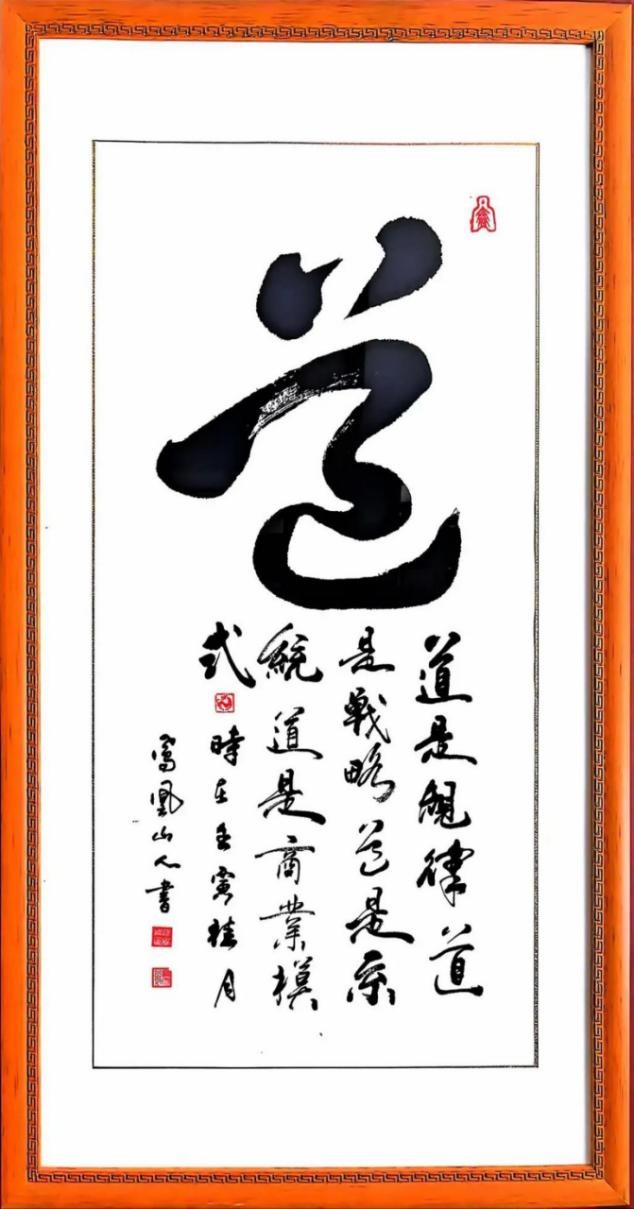 道
道是規律道
是戰略道是系
統道是商業模
式
時在壬寅桂月
鳳凰山人書